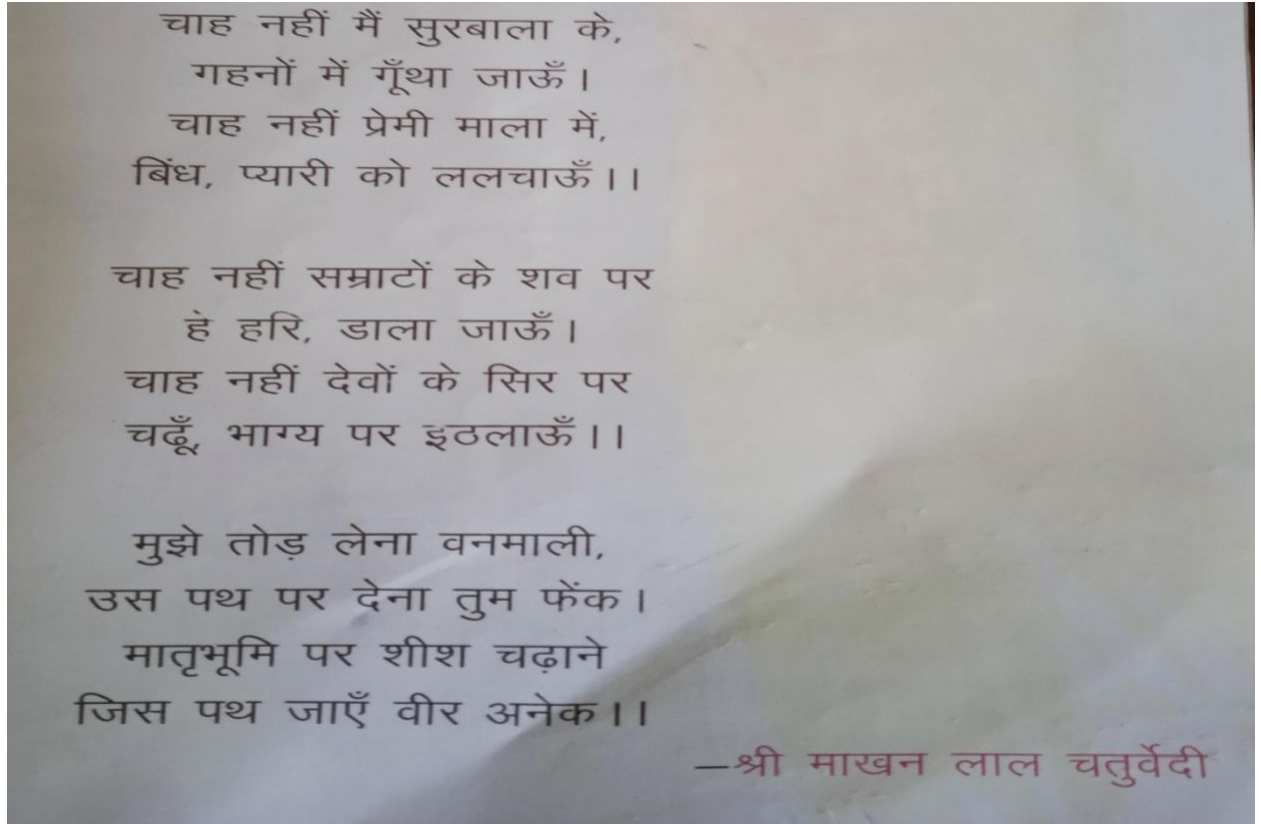 चाह नहीं मैं सुरबाला के,
गहनों में गूँथा जाऊँ।
चाह नहीं प्रेमी माला में,
बिंध, प्यारी को ललचाऊँ।।
चाह नहीं सम्राटों के शव पर
हे हरि, डाला जाऊँ।
चाह नहीं देवों के सिर पर
चढ़ूँ, भाग्य पर इठलाऊँ।।
मुझे तोड़ लेना वनमाली,
उस पथ पर देना तुम फेंक।
मातृभूमि पर शीश चढ़ाने
जिस पथ जाएँ वीर अनेक।।
–श्री माखन लाल चतुर्वेदी